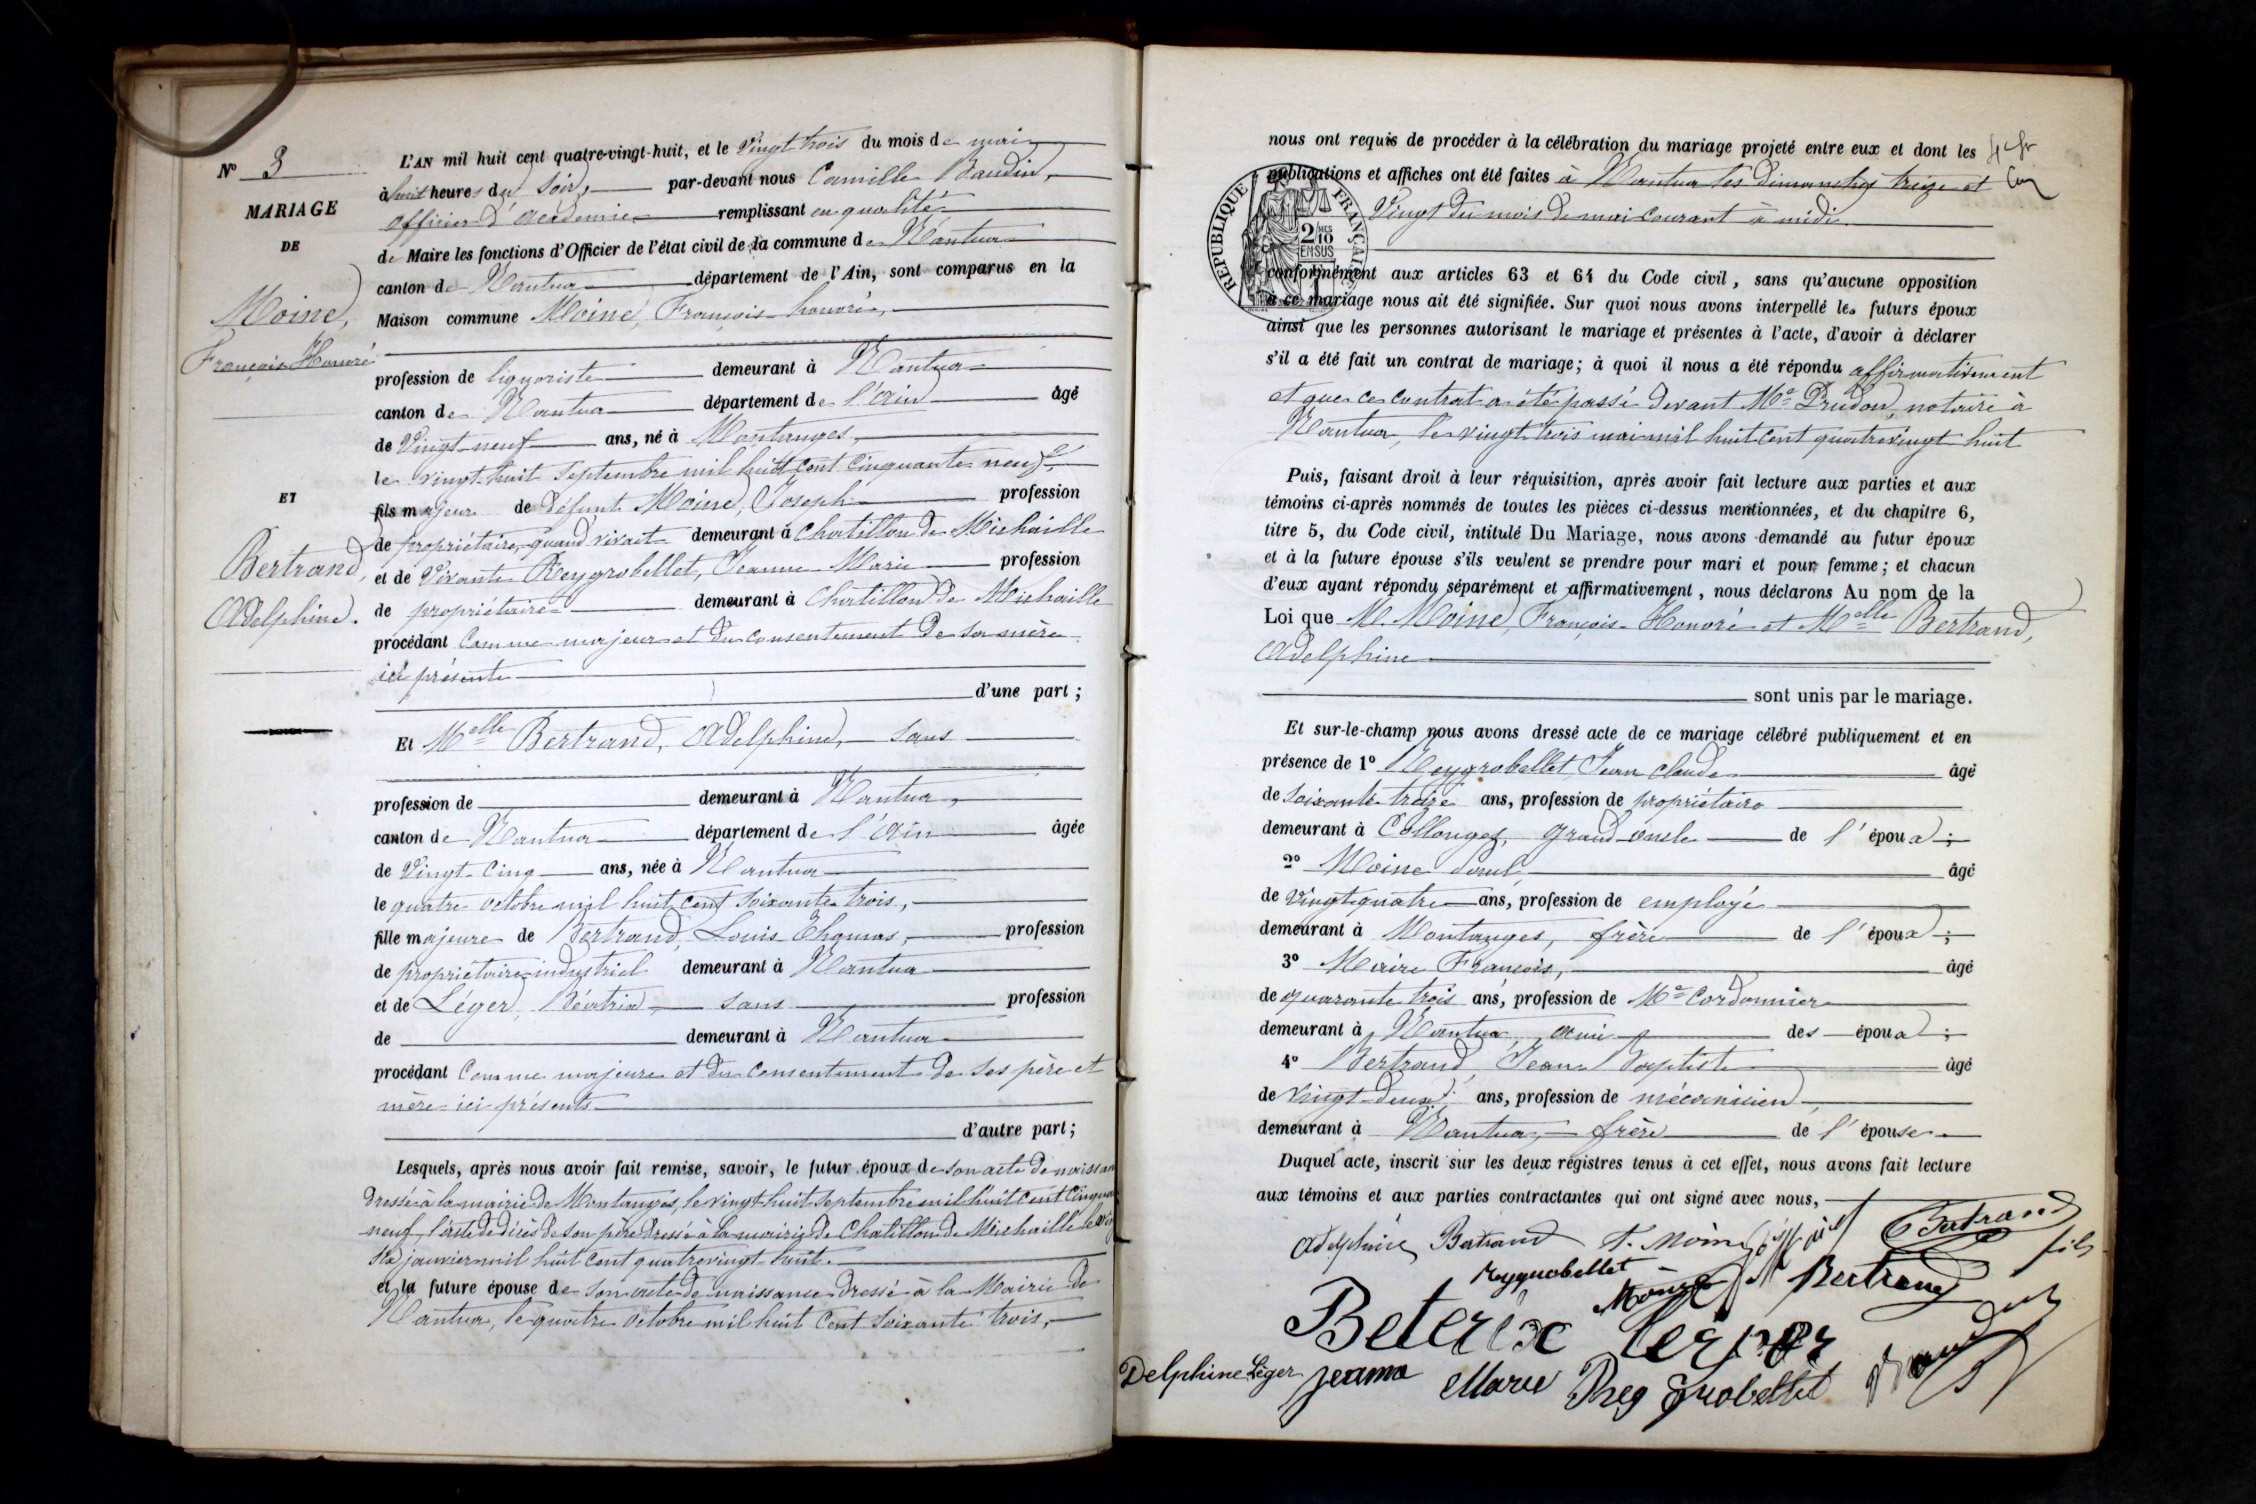 N° 3
MARIAGE
DE
Moine,
François Honoré
ET
Bertrand,
Adelphine.
L'AN mil huit cent quatre-vingt-huit, et le Vingt trois du mois de mai
à huit heures du soir, par-devant nous Camille Baudin,
officier d'académie remplissant en qualité
de Maire les fonctions d'Officier de l'état civil de la commune de Nantua
canton de Nantua département de l'Ain, sont comparus en la
Maison commune Moine, François honoré,
profession de liquoriste demeurant à Nantua
canton de Nantua département de l'Ain âgé
de Vingt-neuf ans, né à Montanges,
le vingt-huit septembre mil huit cent cinquante neuf,
fils majeur de défunt Moine, Joseph profession
de propriétaire quand vivait demeurant à Chatillon de Michaille
et de Vivante Reygrobellet, Jeanne Marie profession
de propriétaire demeurant à Chatillon de Michaille
procédant Comme majeur et du consentement de sa mère
ici présente
d'une part ;
Et Melle Bertrand, Adelphine, sans
profession de demeurant à Nantua,
canton de Nantua département de l'Ain âgée
de Vingt-Cinq ans, née à Nantua
le quatre octobre mil huit cent soixante trois,
fille majeure de Bertrand, Louis Thomas, profession
de propriétaire industriel demeurant à Nantua
et de Léger, Béatrix, sans profession
de demeurant à Nantua
procédant Comme majeure et du consentement de ses père et
mère ici présents
d'autre part ;
Lesquels, après nous avoir fait remise, savoir, le futur époux de son acte de naissan
dressé à la mairie de Montanges, le vingt-huit septembre mil huit cent cinqua
neuf, l'acte de décès de son père dressé à la mairie de Chatillon de Michaille le
janvier mil huit cent quatrevingt-huit.
et la future épouse de son acte de naissance dressé à la Mairie de
Nantua, le quatre octobre mil huit cent soixante trois,
nous ont requis de procéder à la célébration du mariage projeté entre eux et dont les
publications et affiches ont été faites à Nantua les dimanches treize et
Vingt du mois de mai courant à midi
RÉPUBLIQUE FRANÇAISE
2/10 EN SUS
conformément aux articles 63 et 64 du Code civil, sans qu'aucune opposition
à ce mariage nous ait été signifiée. Sur quoi nous avons interpellé les futurs époux
ainsi que les personnes autorisant le mariage et présentes à l'acte, d'avoir à déclarer
s'il a été fait un contrat de mariage; à quoi il nous a été répondu affirmativement
et que ce contrat a été passé devant Me Prudon, notaire à
Nantua, le vingt trois mai mil huit cent quatrevingt huit
Puis, faisant droit à leur réquisition, après avoir fait lecture aux parties et aux
témoins ci-après nommés de toutes les pièces ci-dessus mentionnées, et du chapitre 6,
titre 5, du Code civil, intitulé Du Mariage, nous avons demandé au futur époux
et à la future épouse s'ils veulent se prendre pour mari et pour femme; et chacun
d'eux ayant répondu séparément et affirmativement, nous déclarons Au nom de la
Loi que M. Moine, François-Honoré et Melle Bertrand,
Adelphine
sont unis par le mariage.
Et sur-le-champ nous avons dressé acte de ce mariage célébré publiquement et en
présence de 1° Reygrobellet Jean Claude âgé
de soixante treize ans, profession de propriétaire
demeurant à Collonges, grand oncle de l'époux ;
2° Moine âgé
de Vingt quatre ans, profession de employé
demeurant à Montanges, frère de l'époux ;
3° Maire François, âgé
de quarante trois ans, profession de Me Cordonnier
demeurant à Nantua, ami des époux ;
4° Bertrand, Jean Baptiste âgé
de vingt-deux ans, profession de mécanicien,
demeurant à Nantua, frère de l'épouse
Duquel acte, inscrit sur les deux régistres tenus à cet effet, nous avons fait lecture
aux témoins et aux parties contractantes qui ont signé avec nous,
Adelphine Bertrand F. Moine Bertrand fils
reygrobellet Moine Bertrand
Beterix leger
Delphine Léger jeanne Marie Reygrobellet